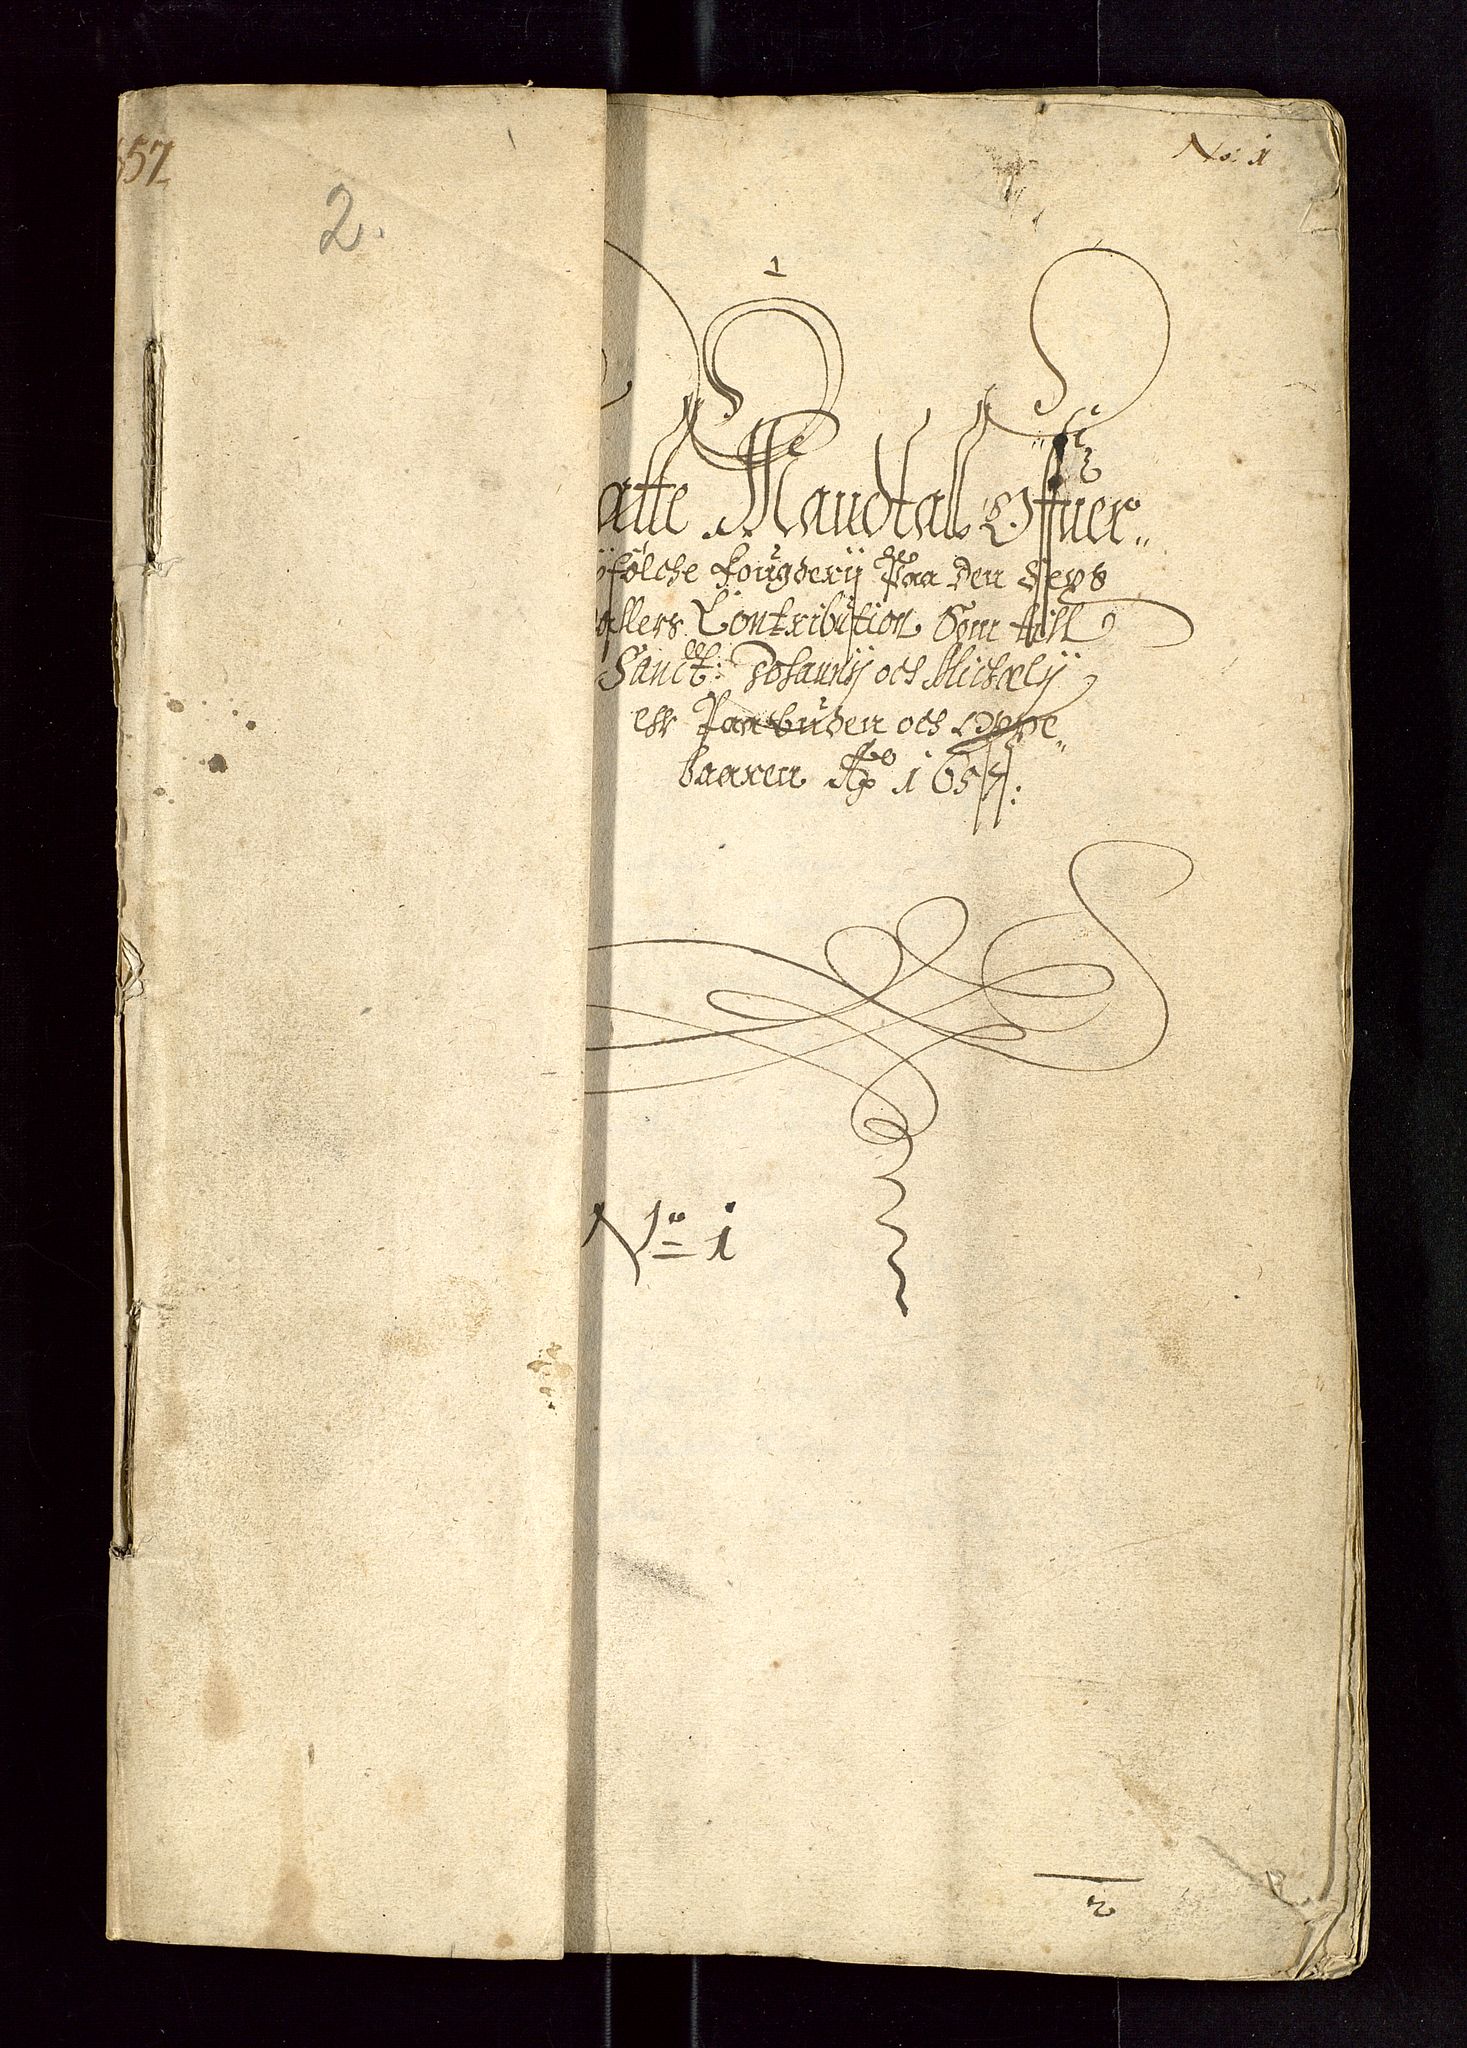 57
2.
No: 1
1
atte Mandtall Offuer
fölche fougderij Paa den Sexs
allers Contribution Som till
Sanct: Johannij och Michaelij
ehr Paabuden och Oppe
baaren Ao 1657:
No 1
2